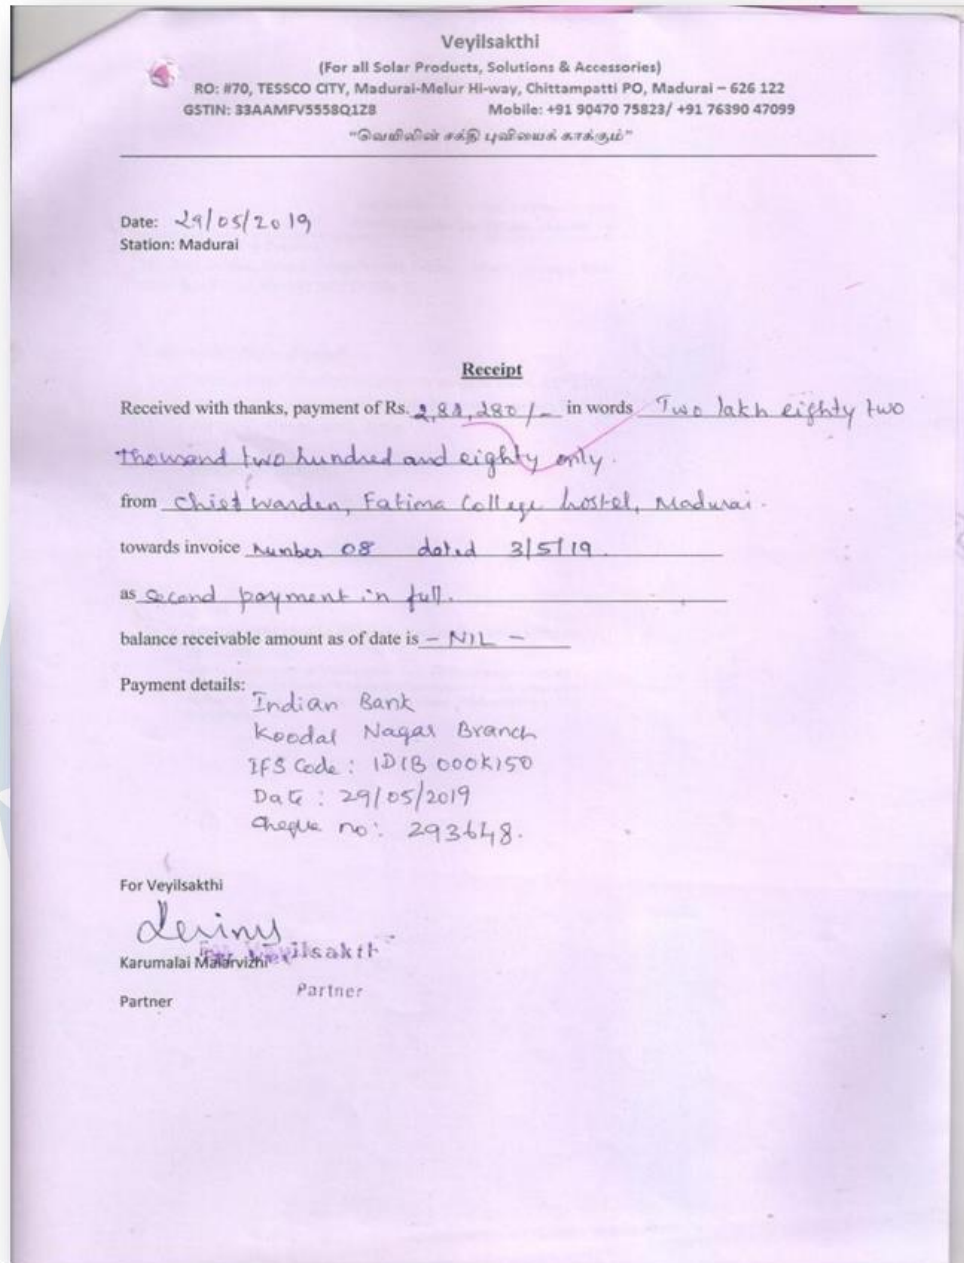 Veyilsakthi
(For all Solar Products, Solutions & Accessories)
RO: #70, TESSCO CITY, Madurai-Melur Hi-way, Chittampatti PO, Madurai – 626 122
GSTIN: 33AAMFV5558Q1Z8 Mobile: +91 90470 75823/ +91 76390 47099
"வெயிலின் சக்தி புவியைக் காக்கும்"
Date: 29/05/2019
Station: Madurai
Receipt
Received with thanks, payment of Rs. 2,82,280/- in words Two lakh eighty two
thousand two hundred and eighty only.
from Chief Warden, Fatima College hostel, Madurai.
towards invoice number 08 dated 3/5/19.
as second payment in full.
balance receivable amount as of date is – NIL –
Payment details:
Indian Bank
Koodal Nagar Branch
IFS Code: IDIB000K150
Date: 29/05/2019
Cheque no: 293648.
For Veyilsakthi
Karumalai Malarvizhi
Partner
Partner